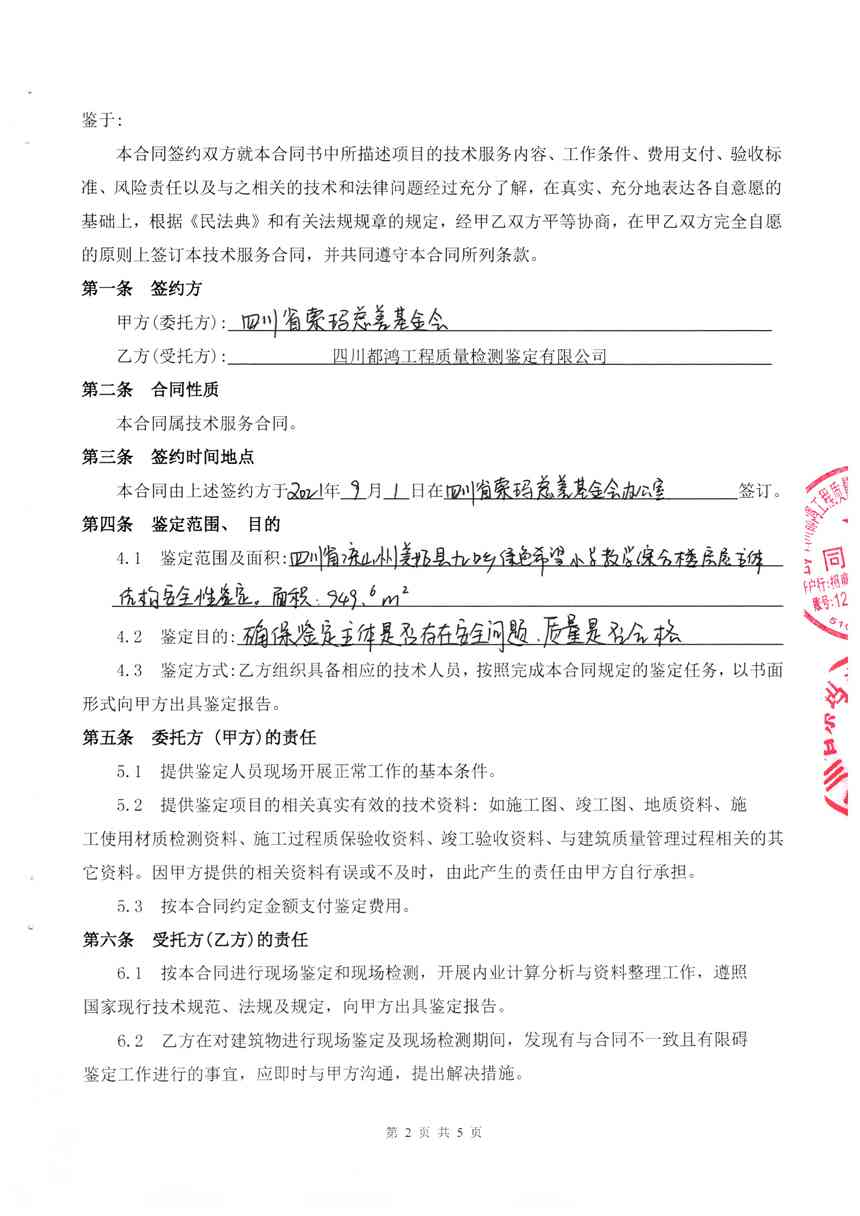 鉴于:
本合同签约双方就本合同书中所描述项目的技术服务内容、工作条件、费用支付、验收标
准、风险责任以及与之相关的技术和法律问题经过充分了解，在真实、充分地表达各自意愿的
基础上，根据《民法典》和有关法规规章的规定，经甲乙双方平等协商，在甲乙双方完全自愿
的原则上签订本技术服务合同，并共同遵守本合同所列条款。
第一条 签约方
甲方(委托方): 四川省索玛慈善基金会
乙方(受托方): 四川都鸿工程质量检测鉴定有限公司
第二条 合同性质
本合同属技术服务合同。
第三条 签约时间地点
本合同由上述签约方于2021年 9 月 1 日在四川省索玛慈善基金会办公室 签订。
第四条 鉴定范围、 目的
4.1 鉴定范围及面积:四川省凉山州美姑县九口乡绿色希望小学教学综合楼房屋主体
结构安全性鉴定。面积：949.6m²
4.2 鉴定目的:确保鉴定主体是否存在安全问题.质量是否合格
4.3 鉴定方式:乙方组织具备相应的技术人员，按照完成本合同规定的鉴定任务，以书面
形式向甲方出具鉴定报告。
第五条 委托方 (甲方)的责任
5.1 提供鉴定人员现场开展正常工作的基本条件。
5.2 提供鉴定项目的相关真实有效的技术资料: 如施工图、竣工图、地质资料、施
工使用材质检测资料、施工过程质保验收资料、竣工验收资料、与建筑质量管理过程相关的其
它资料。因甲方提供的相关资料有误或不及时，由此产生的责任由甲方自行承担。
5.3 按本合同约定金额支付鉴定费用。
第六条 受托方(乙方)的责任
6.1 按本合同进行现场鉴定和现场检测，开展内业计算分析与资料整理工作，遵照
国家现行技术规范、法规及规定，向甲方出具鉴定报告。
6.2 乙方在对建筑物进行现场鉴定及现场检测期间，发现有与合同不一致且有限碍
鉴定工作进行的事宜，应即时与甲方沟通，提出解决措施。
第 2 页 共 5 页